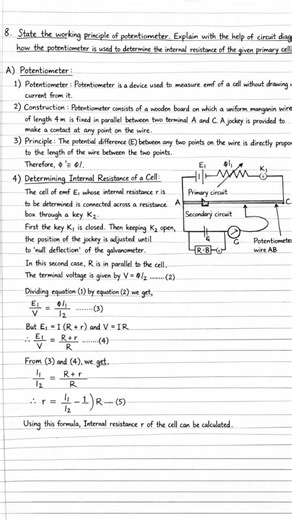 8. State the working principle of potentiometer. Explain with the help of circuit diag
how the potentiometer is used to determine the internal resistance of the given primary cell
A) Potentiometer :
1) Potentiometer : Potentiometer is a device used to measure emf of a cell without drawing
current from it.
2) Construction : Potentiometer consists of a wooden board on which a uniform manganin wire
of length 4 m is fixed in parallel between two terminal A and C. A jockey is provided to
make a contact at any point on the wire.
3) Principle : The potential difference (E) between any two points on the wire is directly propor
to the length of the wire between the two points.
Therefore,
4) Determining Internal Resistance of a Cell :
The cell of emf E₁ whose internal resistance r is
to be determined is connected across a resistance
box through a key K₂.
First the key K₁ is closed. Then keeping K₂ open,
the position of the jockey is adjusted until
to 'null deflection' of the galvanometer.
In this second case, R is in parallel to the cell.
The terminal voltage is given by V = Φl₂ ........(2)
E₁ Φl₁ K₁
Primary circuit
A C
Secondary circuit
G
R·B
Potentiometer
wire AB
Dividing equation (1) by equation (2) we get,
E₁/V = Φl₁/l₂ ........(3)
But E₁ = I (R + r) and V = I R
∴ E₁/V = R+r/R ........(4)
From (3) and (4), we get.
l₁/l₂ = R + r/R
∴ r = l₁/l₂ - 1) R .... (5)
Using this formula, Internal resistance r of the cell can be calculated.